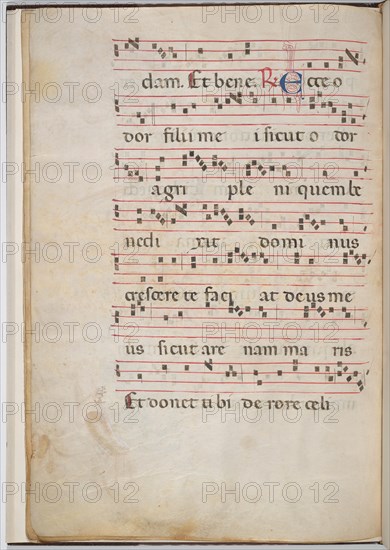 dam. Et bene. R. Ecce o
dor filii me i sicut o dor
agri ple ni quem be
nedi xit domi nus
crescere te faci at deus me
us sicut are nam ma ris
Et donet ti bi de rore celi
PHOTO 12